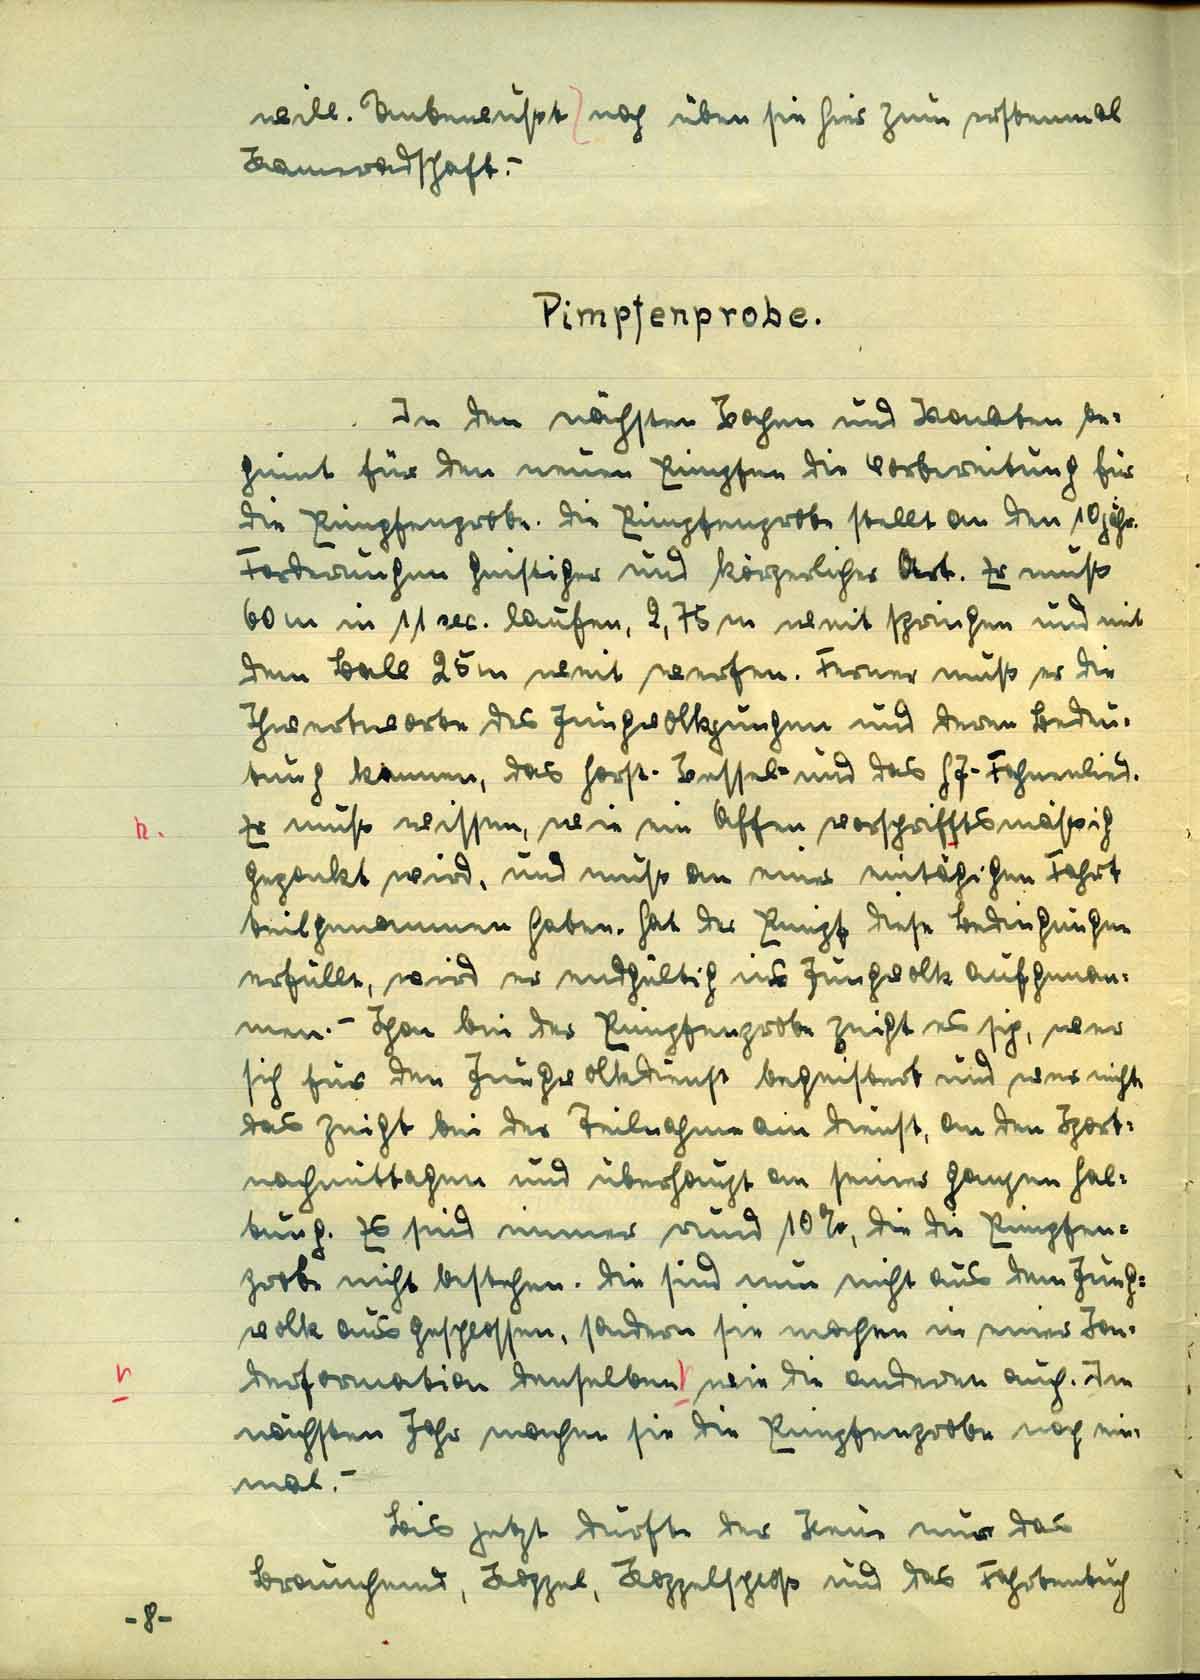 will. Unbewußt noch üben sie hier zum erstenmal
Kameradschaft.-
Pimpfenprobe.
In den nächsten Wochen und Monaten be-
ginnt für den neuen Pimpfen die Vorbereitung für
die Pimpfenprobe. Die Pimpfenprobe stellt an den 10jähr.
Forderungen geistiger und körperlicher Art. Er muß
60 m in 11 sec. laufen, 2,75 m weit springen und mit
dem Ball 25 m weit werfen. Ferner muß er die
Schwertworte des Jungvolkjungen und deren Bedeu-
tung kennen, das Horst-Wessel- und das HJ-Fahnenlied.
R. Er muß wissen, wie ein Affen vorschrifftsmäßig
gepackt wird, und muß an einer eintägigen Fahrt
teilgenommen haben. Hat der Pimpf diese Bedingungen
erfüllt, wird er endgültig ins Jungvolk aufgenom-
men.- Schon bei der Pimpfenprobe zeigt es sich, wer
sich für den Jungvolkdienst begeistert und wer nicht.
Das zeigt bei der Teilnahme am Dienst, an den Sport-
nachmittagen und überhaupt an seiner ganzen Hal-
tung. Es sind immer rund 10%, die die Pimpfen-
probe nicht bestehen. Die sind nun nicht aus dem Jung-
volk ausgeschlossen, sondern sie machen in einer Son-
r derformation denselben r wie die anderen auch. Im
nächsten Jahr machen sie die Pimpfenprobe noch ein-
mal.-
Bis jetzt durfte der Neue nur das
Braunhemd, Koppel, Koppelschloß und das Fahrtentuch
-8-